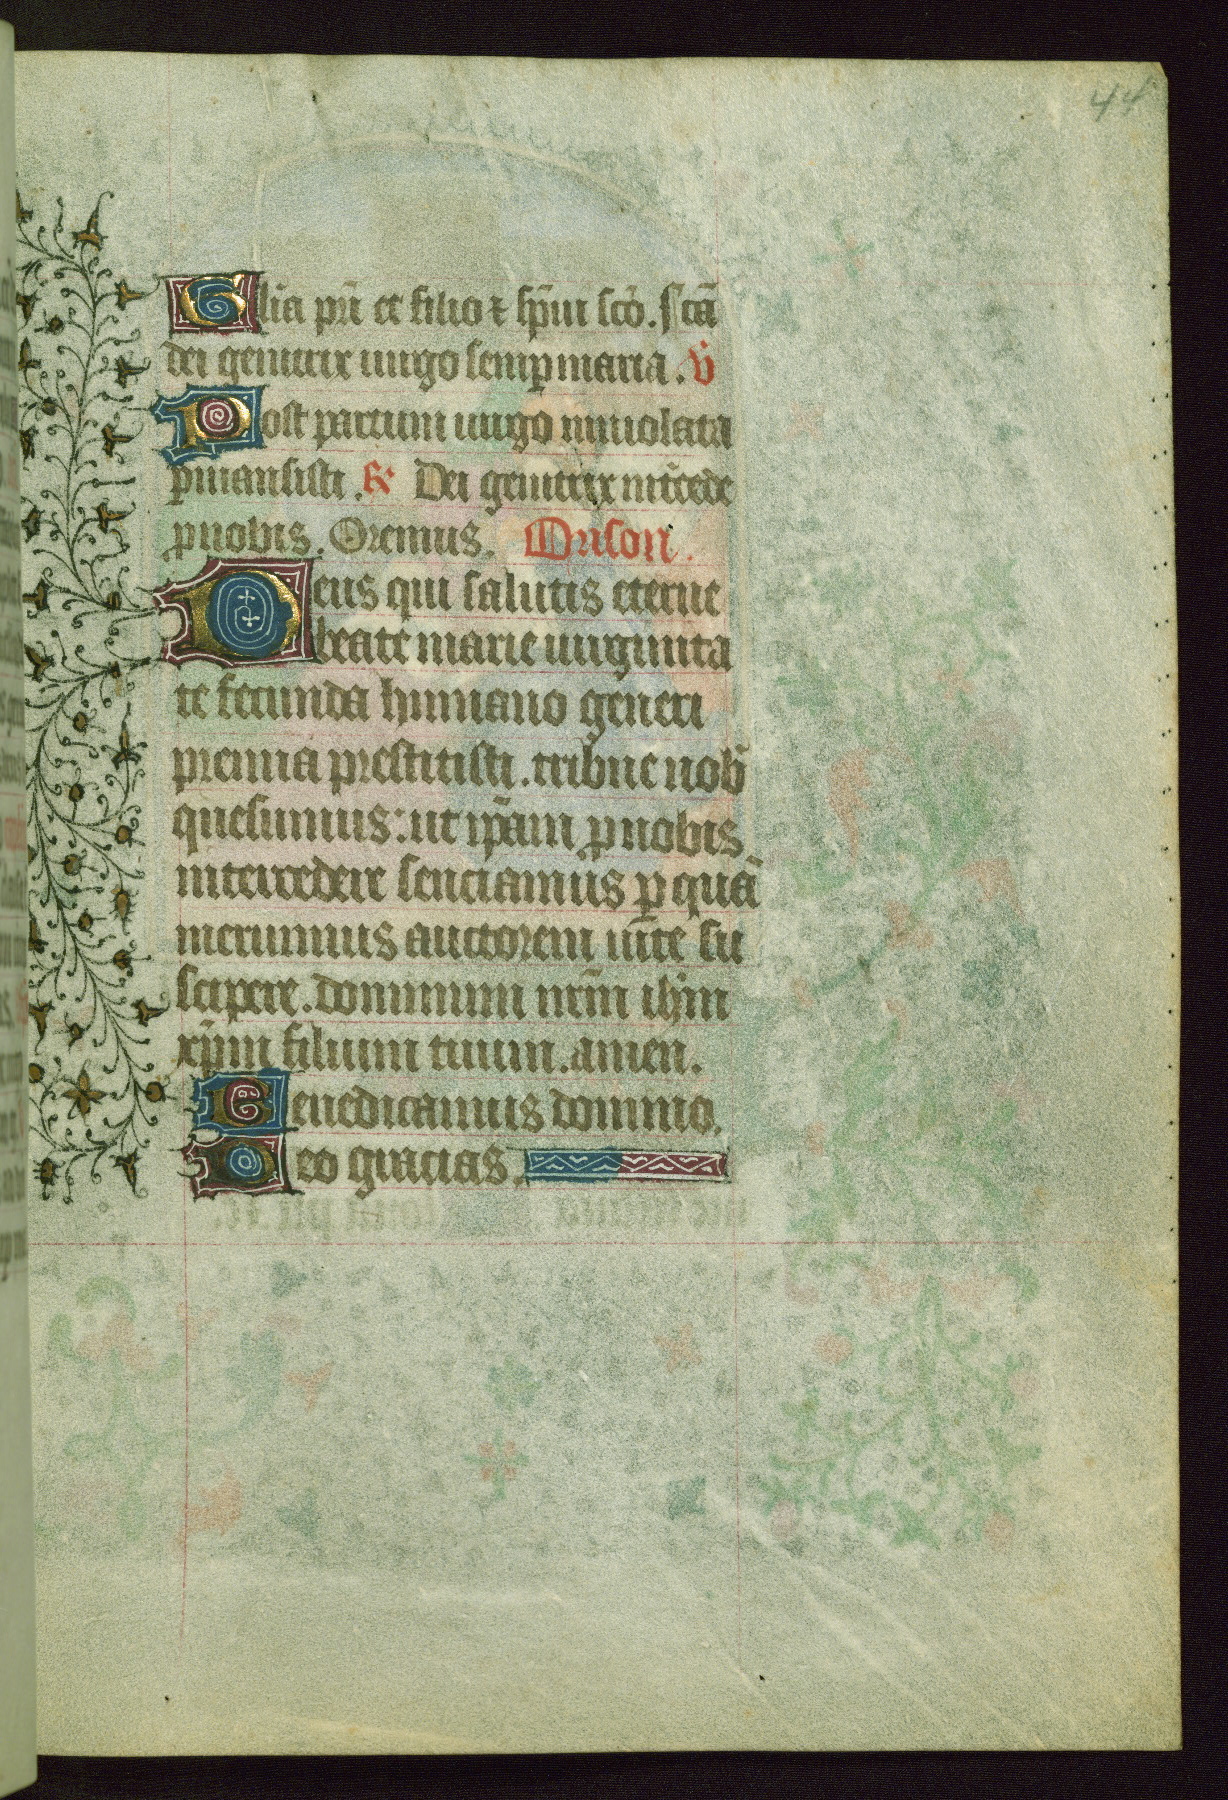 44
Glīa pr̄i et filio ⁊ sp̄ui sc̄o. Sc̄a
dei genitrix uirgo semꝑ maria. V̄
Post partum uirgo inuiolata
ꝑmansisti. R̄ Dei genitrix int̄cede
ꝓ nobis. Oremus. Orison.
Deus qui salutis eterne
beate marie uirginita
te fecunda humano generi
premia prestitisti. tribue nob̄
quesumus: ut ip̄am ꝓ nobis
intercedere senciamus ꝑ quā
meruimus auctorem uite su
scipere. dominum nr̄m ih̄m
xp̄m filium tuum. amen.
Benedicamus domino.
Deo gracias.